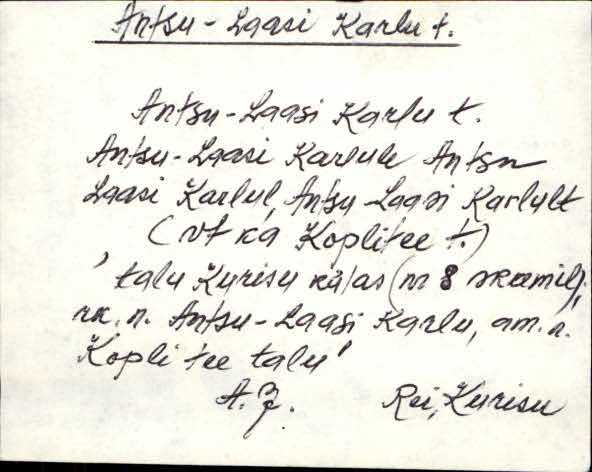 Antsu-Laasi Karlu t.
Antsu-Laasi Karlu t.
Antsu-Laasi Karlule Antsu
Laasi Karlul, Antsu-Laasi Karlult
(vt ka Koplitee t.)
' talu Kurisu külas (nr 8
rk. n. Antsu-Laasi Karlu, am. n.
Koplitee talu'
A. J. Rei, Kurisu